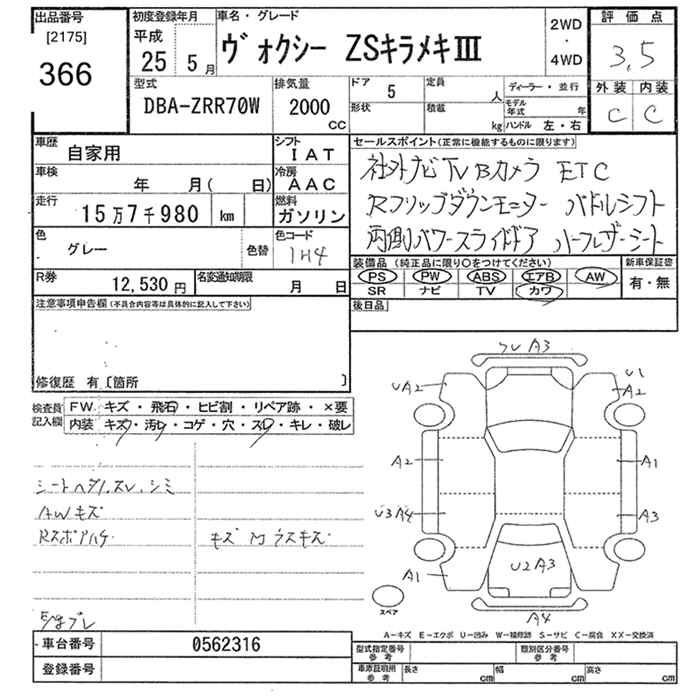 出品番号
[2175]
366
初度登録年月
平成
25 5月
車名・グレード
ヴォクシー ZSキラメキⅢ
2WD
・
4WD
評価点
3.5
外装 内装
C C
型式
DBA-ZRR70W
排気量
2000
CC
ドア 5
定員 人
ディーラー・並行
形状
積載 kg
モデル年式 年
ハンドル 左・右
車歴
自家用
シフト
IAT
車検
年 月( 日)
冷房
AAC
走行
15万7千980 km
燃料
ガソリン
色
グレー
色替
色コード
1H4
R券
12,530円
名変通知期限
月 日
セールスポイント(正常に機能するものに限ります)
社外ナビ TV Bカメラ ETC
Rフリップダウンモニター パドルシフト
両側パワースライドドア ハーフレザーシート
装備品(純正品に限り○をつけてください)
PS PW ABS エアB AW
SR ナビ TV カワ
新車保証書
有・無
後日品
注意事項申告欄(不具合内容等は具体的に記入して下さい)
修復歴 有〔箇所 〕
検査員記入欄
FW キズ・飛石・ヒビ割・リペア跡・×要
内装 キズ・汚レ・コゲ・穴・スレ・キレ・破レ
シートヘタリ.スレ.シミ
AWキズ
キズ
A3
UA2
U1
A2
A2
A1
U3 A4
A3
U2 A3
A1
スペア
A4
A-キズ E-エクボ U-凹み W-補修跡 S-サビ C-腐食 XX-交換済
車台番号
0562316
登録番号
型式指定番号
参考
類別区分番号
参考
車庫証明用
参考
長さ cm
幅 cm
高さ cm